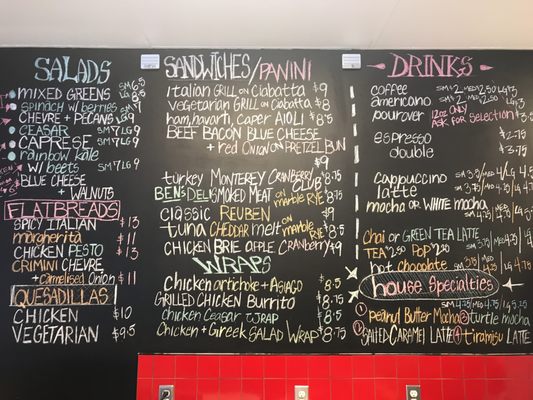 SALADS
MIXED GREENS SM 6.5
spinach w/ berries
CHEVRE + PECANS
CEASAR SM 7 LG 9
CAPRESE SM 7 LG 9
rainbow kale
w/ beets SM 7 LG 9
BLUE CHEESE
+ WALNUTS
FLATBREADS
SPICY ITALIAN $13
margherita $11
CHICKEN PESTO $13
CRIMINI CHEVRE
+ carmelised Onion $11
QUESADILLAS
CHICKEN $10
VEGETARIAN $9.5
SANDWICHES/PANINI
italian GRILL on CIABATTA $9
vegetarian GRILL on CIABATTA $8
ham, havarti, caper AIOLI $8.5
BEEF BACON BLUE CHEESE
+ red ONION on PRETZEL BUN
$9
turkey MONTEREY CRANBERRY CLUB $8.5
BEN'S DELI SMOKED MEAT on marble RYE $9
classic REUBEN
tuna CHEDDAR melt on marble RYE $8.5
CHICKEN BRIE APPLE CRANBERRY $9
WRAPS
CHICKEN artichoke + ASIAGO $8.5
GRILLED CHICKEN BURRITO $8.5
CHICKEN CEASAR WRAP $8.5
CHICKEN + GREEK SALAD WRAP $8.5
DRINKS
coffee
americano
pourover 12oz ONLY ASK for SELECTION
espresso $2.75
double
cappuccino
latte
mocha OR WHITE mocha
chai or GREEN TEA LATTE
TEA $2.50 POP $2.00
hot chocolate
house Specialties
① peanut BUTTER MOCHA ② turtle mocha
③ SALTED CARAMEL LATTE ④ tiramisu LATTE